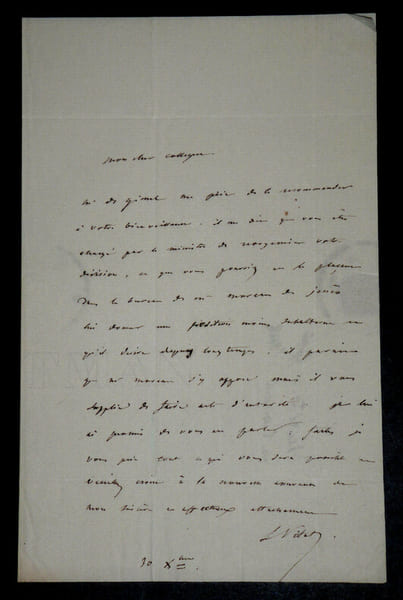 mon cher collègue
M. de Gisnel me prie de le recommander
à votre bienveillance. il me dit que vous êtes
chargé par le ministre de réorganiser votre
division, et que vous pourriez en le plaçant
dans le bureau de mr moreau de jonnès
lui donner une position moins subalterne
qu'il désire depuis longtemps. il paraît
que mr moreau s'y oppose mais il vous
supplie de faire acte d'autorité. je lui
ai promis de vous en parler. faites je
vous prie tout ce qui vous sera possible et
veuillez croire à la nouvelle assurance de
mon sincère et affectueux attachement
L. Vitet
30 Xbre.